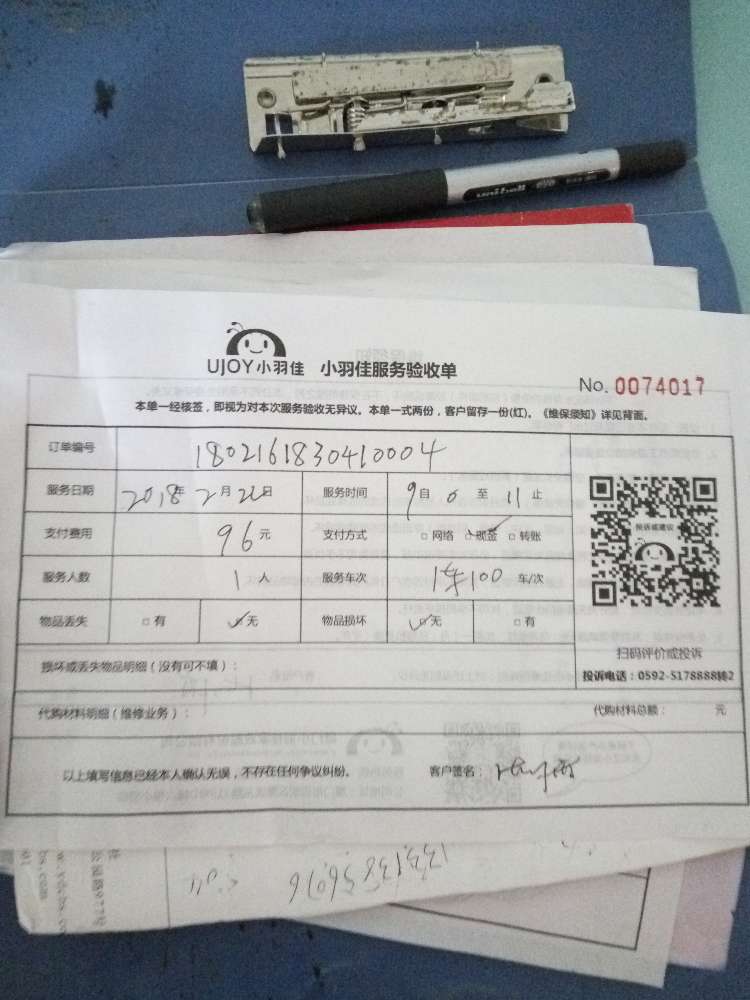 uni-ball
UJOY小羽佳 小羽佳服务验收单
No. 0074017
本单一经核签，即视为对本次服务验收无异议。本单一式两份，客户留存一份(红)。《维保须知》详见背面。
订单编号 1802161830410004
服务日期 2018年 2月 日 服务时间 9自 0 至 11止
支付费用 96元 支付方式 □网络 ☑现金 □转账
服务人数 1人 服务车次 1车100 车/次
物品丢失 □有 ☑无 物品损坏 ☑无 □有
投诉或建议
扫码评价或投诉
损坏或丢失物品明细（没有可不填）：
投诉电话：0592-5178888转2
代购材料明细（维修业务）： 代购材料总额： 元
以上填写信息已经本人确认无误，不存在任何争议纠纷。 客户签名：